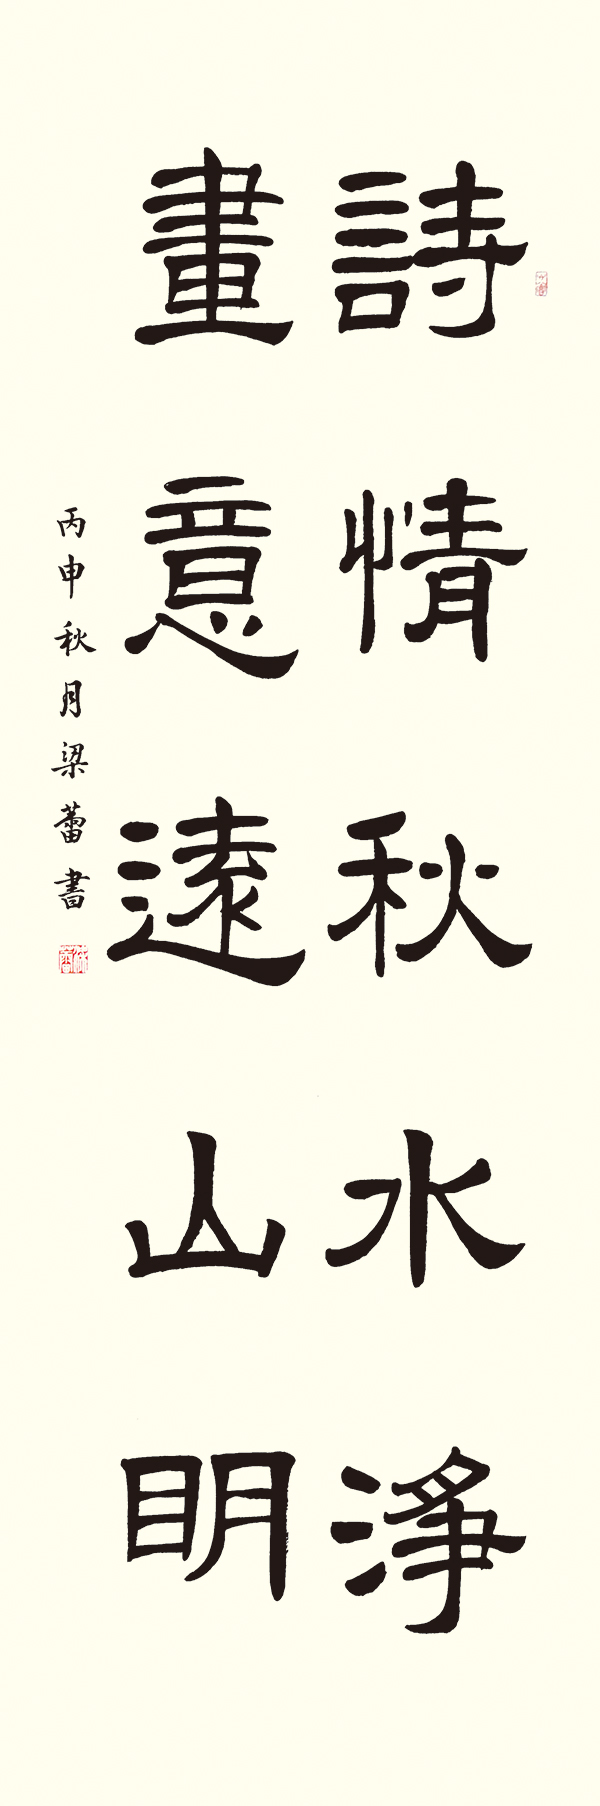 詩情秋水淨
畫意遠山明
丙申秋月梁蕾書